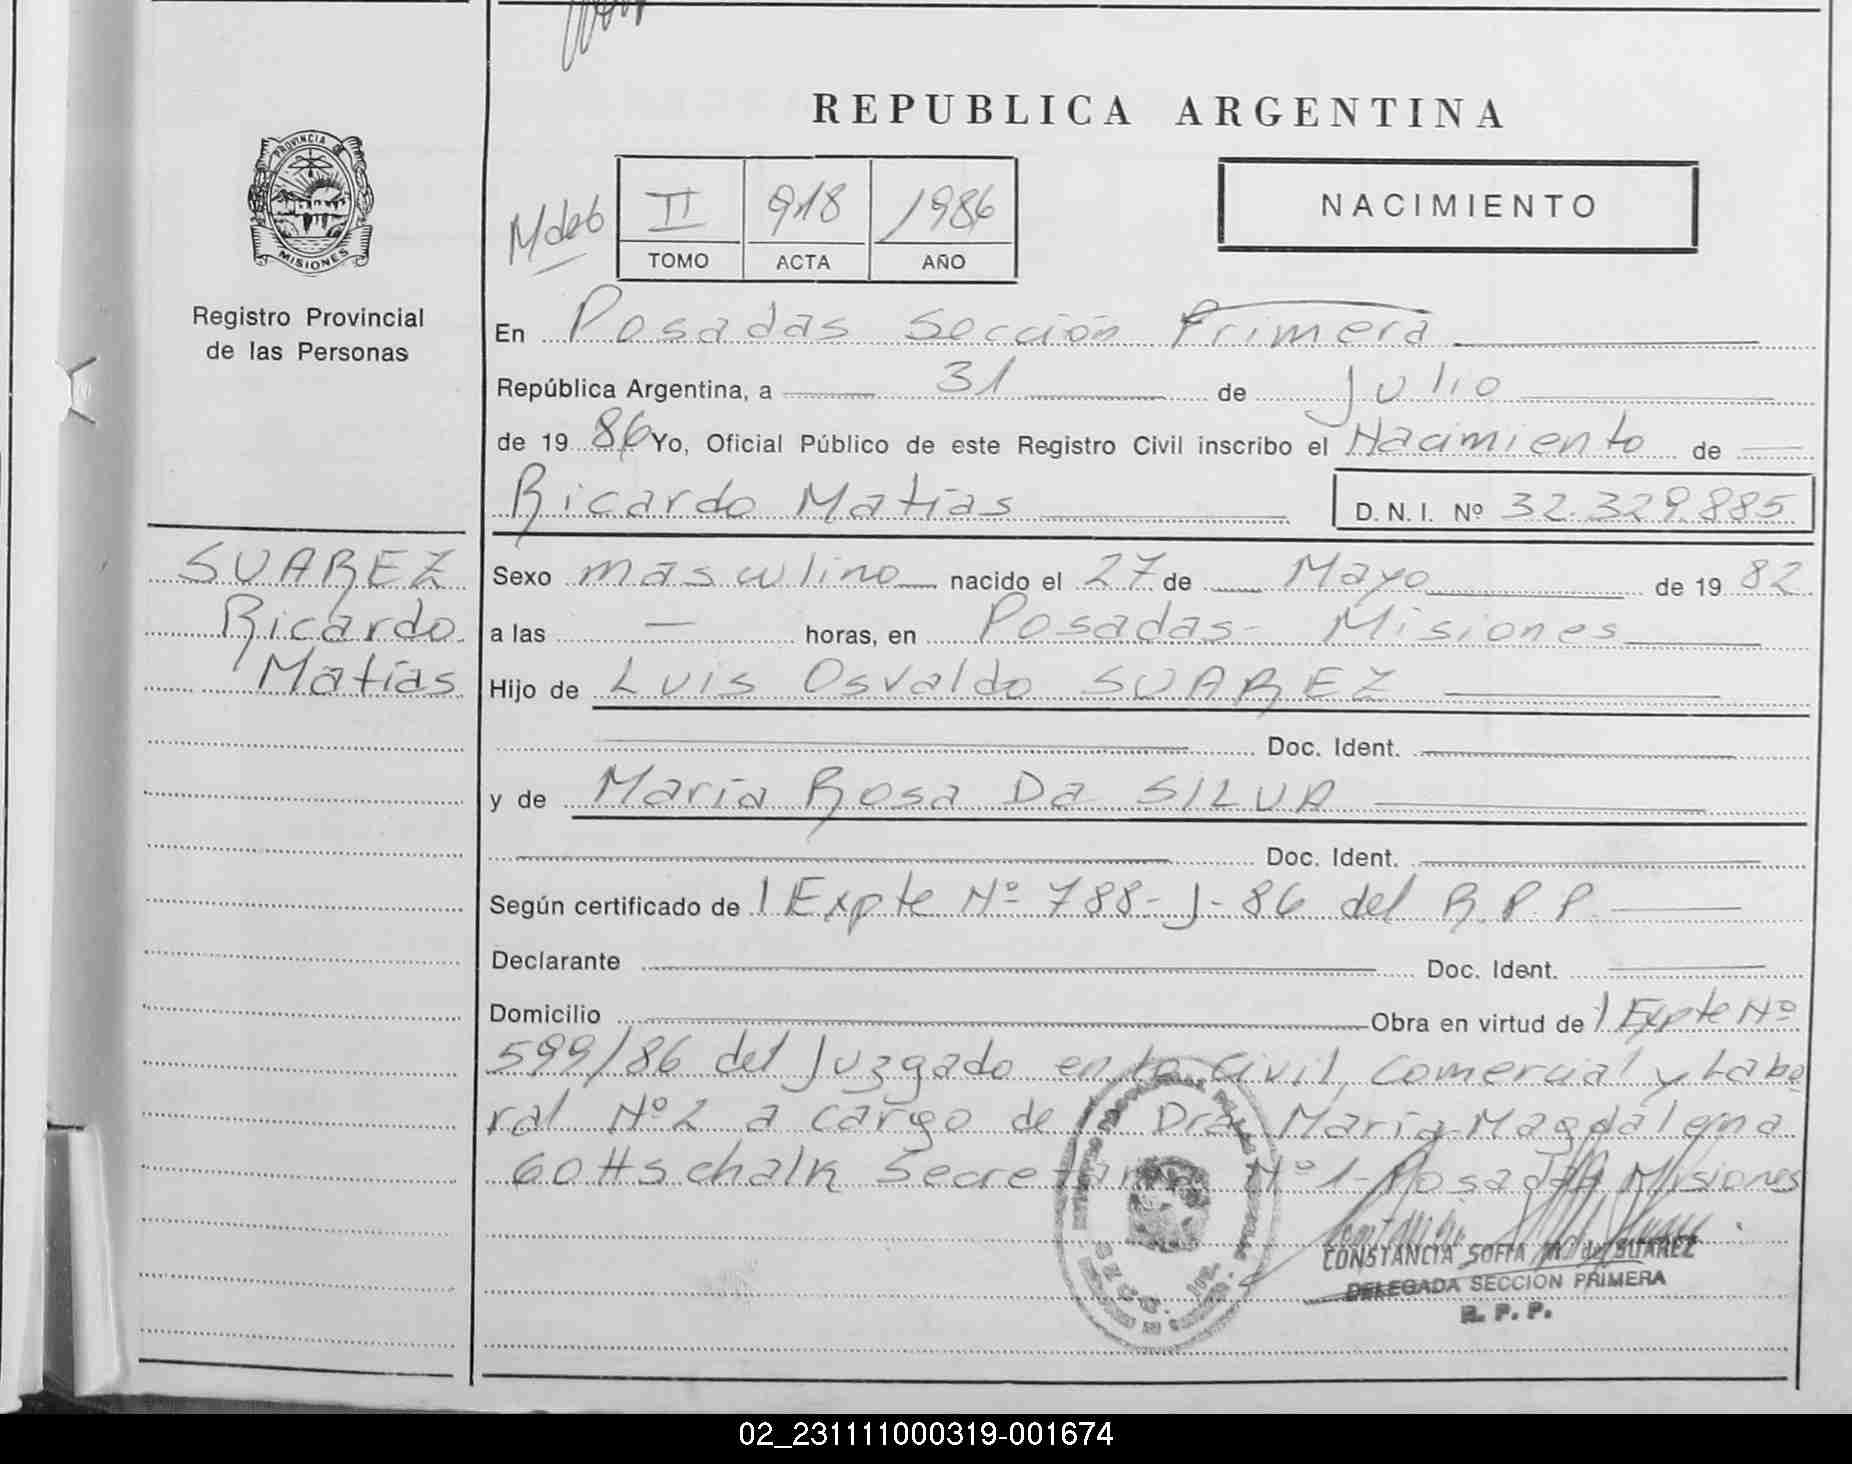 REPUBLICA ARGENTINA
PROVINCIA DE
MISIONES
Registro Provincial
de las Personas
II 918 1986
TOMO ACTA AÑO
NACIMIENTO
En Posadas Sección Primera
República Argentina, a 31 de Julio
de 1986 Yo, Oficial Público de este Registro Civil inscribo el Nacimiento de
Ricardo Matías D.N.I. Nº 32.329.885
SUAREZ
Ricardo
Matías
Sexo masculino nacido el 27 de Mayo de 1982
a las — horas, en Posadas - Misiones
Hijo de Luis Osvaldo SUAREZ
Doc. Ident.
y de María Rosa Da SILVA
Doc. Ident.
Según certificado de / Expte Nº 788-J-86 del R.P.P.
Declarante Doc. Ident.
Domicilio Obra en virtud de / Expte Nº
599/86 del Juzgado en lo Civil, Comercial y Labo
ral Nº 2 a cargo de Dra María Magdalena
Gottschalk Secretaría Nº 1 - Posadas Misiones
CONSTANCIA SOFIA M. de SUAREZ
DELEGADA SECCION PRIMERA
R. P. P.
02_231111000319-001674